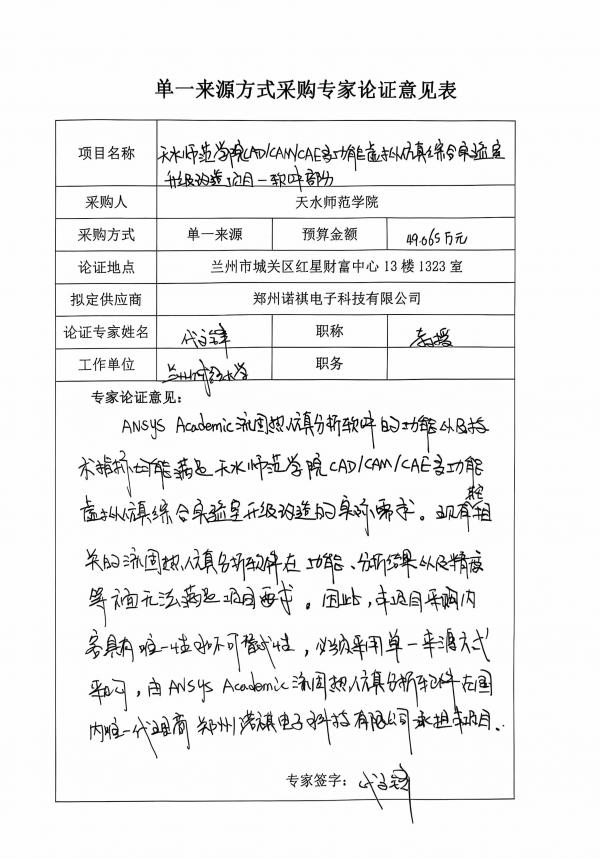 单一来源方式采购专家论证意见表
项目名称 天水师范学院CAD/CAM/CAE多功能虚拟仿真综合实验室
升级改造项目一软件部分
采购人 天水师范学院
采购方式 单一来源 预算金额 49.065万元
论证地点 兰州市城关区红星财富中心 13 楼 1323 室
拟定供应商 郑州诺祺电子科技有限公司
论证专家姓名 职称 教授
工作单位 兰州财经大学 职务
专家论证意见:
ANSYS Academic流固热仿真分析软件的功能以及技
术指标均能满足天水师范学院CAD/CAM/CAE多功能
虚拟仿真综合实验室升级改造的实际需求。现有相
关的流固热仿真分析软件在功能、分析结果以及精度
等方面无法满足项目要求。因此,本项目采购内
容具有唯一性和不可替代性,必须采用单一来源方式
采购,由ANSYS Academic流固热仿真分析软件在国
内唯一代理商郑州诺祺电子科技有限公司承担本项目.
专家签字: